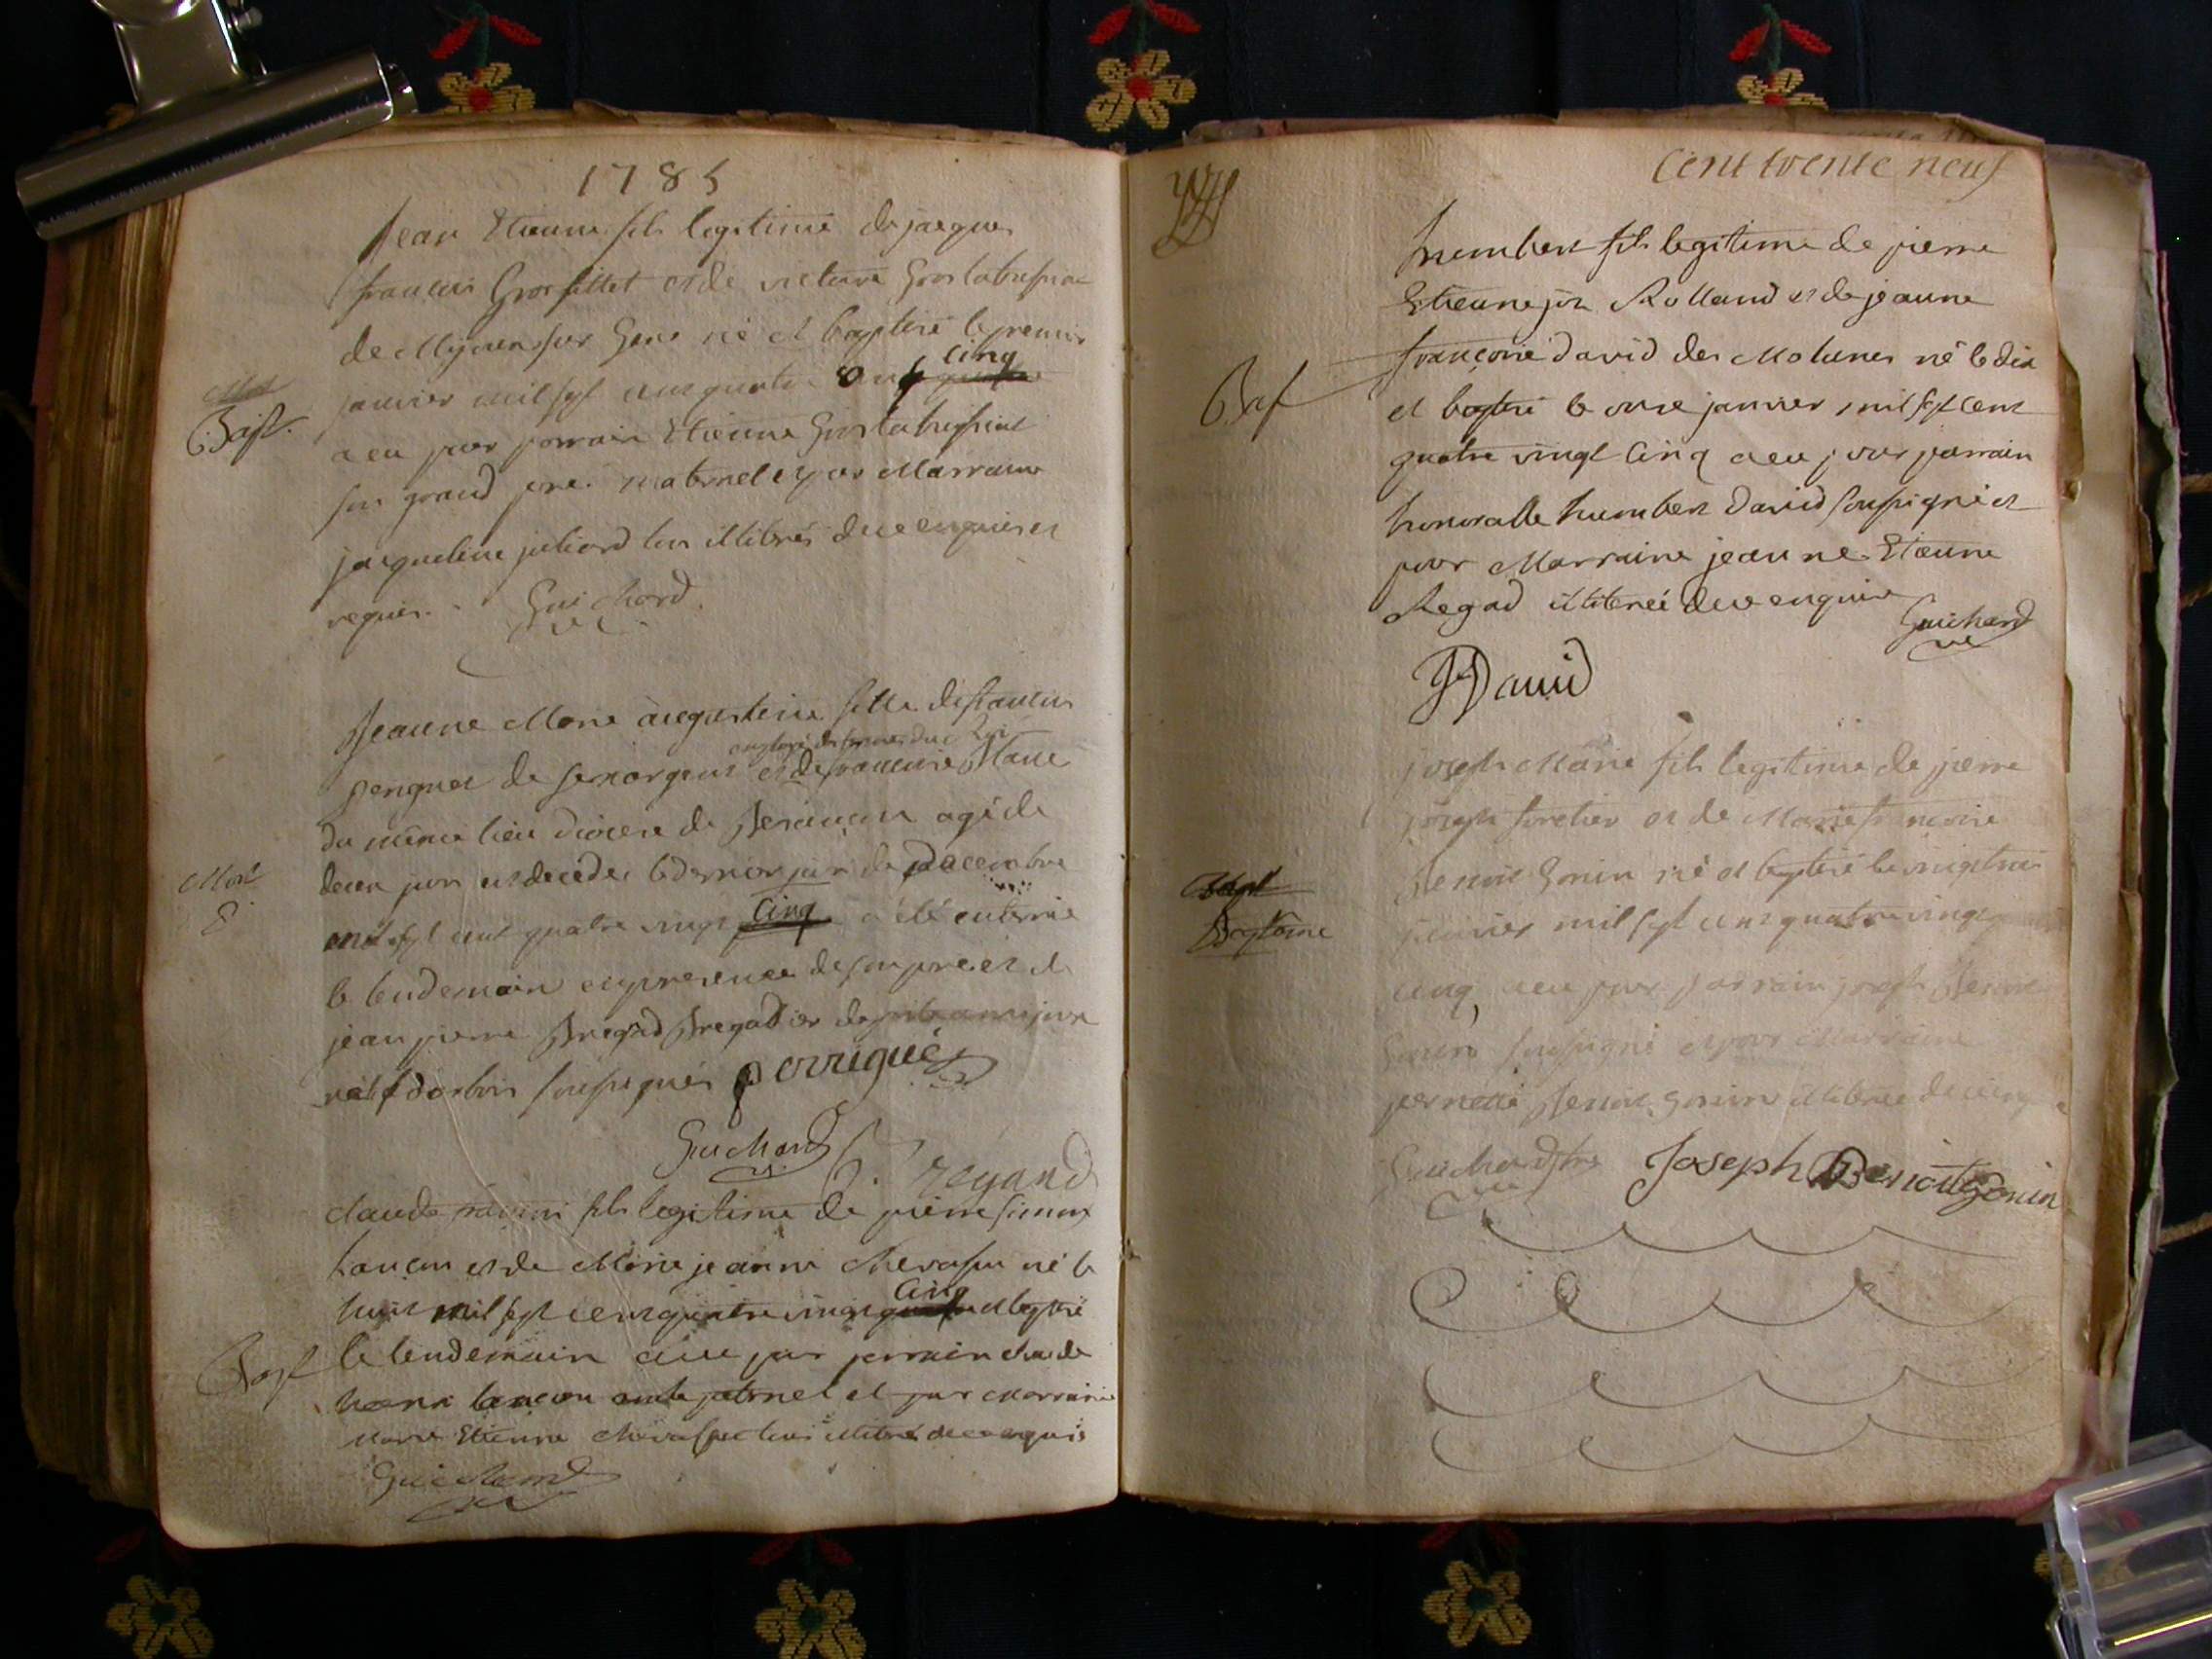 1785
Jean Etienne fils legitime de jacque
francois Grosfillet et de victoire Grostabussiat
de Mijoux sur Gex né et baptisé le premier
cinq
janvier mil sept cent quatre
Mort
Bapt.
a eu pour parrain Etienne Grostabussiat
son grand pere maternel et pour Marraine
jacqueline juliard tous illiterés de ce enquis et
requis. Guichard
Jeanne Marie augustine fille de francois
employé des fermes du Roi
perrigues de et de francoise
du meme lieu diocese de Besancon agé de
Mort
deux jours est decedée le dernier jour de Decembre
mil sept cent quatre vingt cinq a été enterrée
le lendemain en presence de son pere et de
jean pierre Regad Bregadier
soussignés perrigué
Guichard
J. P. regand
claude fils legitime de pierre simon
lancon et de Marie jeanne chevassu né le
cinq
huit mil sept cent quatre vingt et baptisé
Bapt
le lendemain a eu pour parrain claude
lancon oncle paternel et pour Marraine
Marie Etienne chevassu tous illiteré de ce enquis
Guichard
cent trente neuf
humbert fils legitime de pierre
Etienne Rolland et de jeanne
francoise david des Molunes né le dix
Bap
et baptisé le onze janvier mil sept cent
quatre vingt cinq a eu pour parrain
honorable humbert David soussigné et
pour Marraine jeanne Etienne
Regad illiterée de ce enquise
Guichard
H David
joseph Marie fils legitime de pierre
joseph forestier et de Marie francoise
Benoit Gonin né et baptisé le vingt trois
Bapteme
janvier mil sept cent quatre vingt
cinq a eu pour parrain joseph Benoit
Gonin soussigné et pour Marraine
pernette Benoit Gonin illiterée de ce enquise
Guichard ptre Joseph Benoit gonin